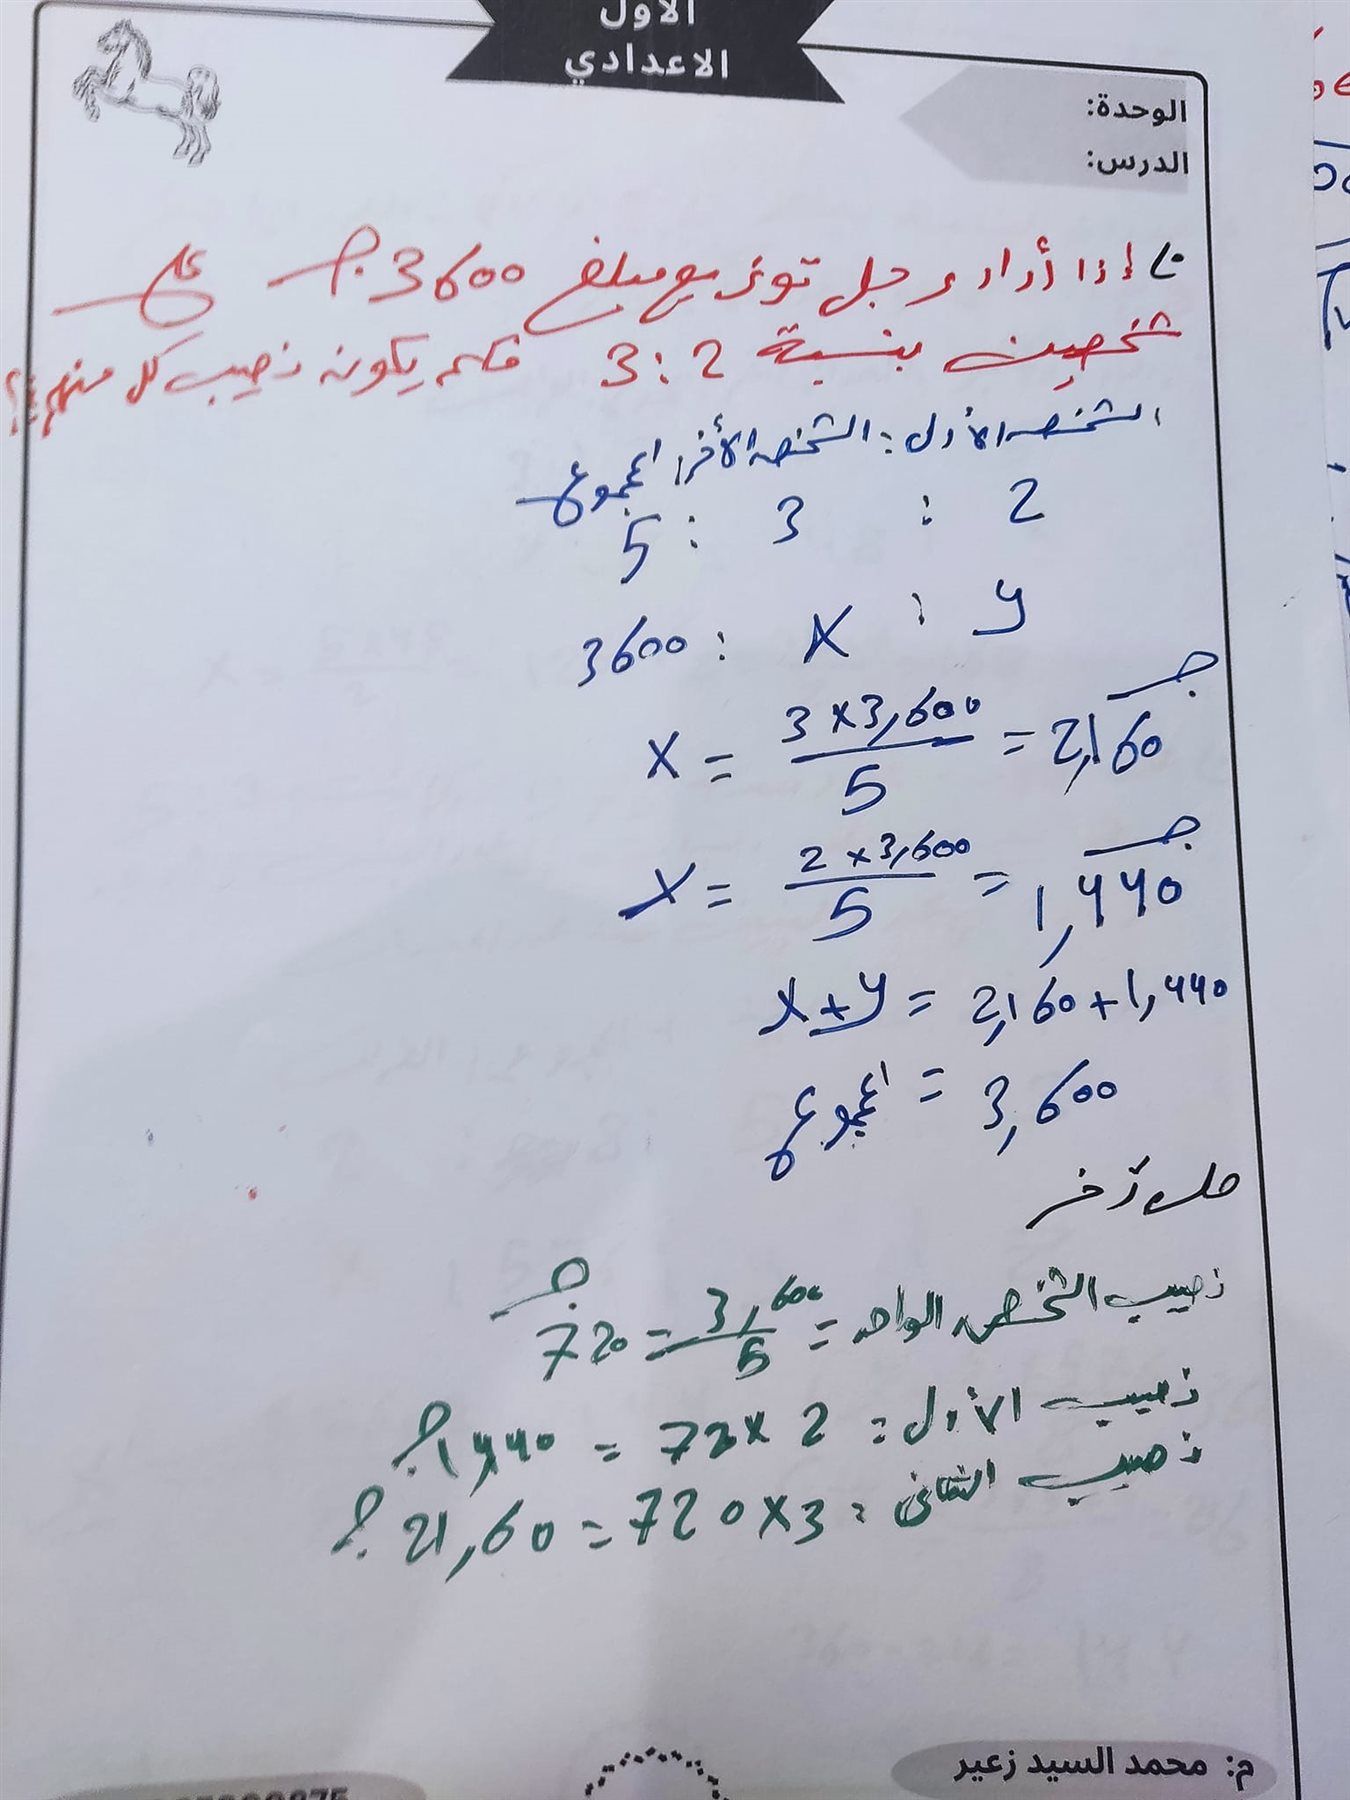 الأول
الاعدادي
الوحدة:
الدرس:
إذا أراد رجل توزيع مبلغ 3600 جـ على
شخصين بنسبة 2 : 3 فكم يكون نصيب كل منهم؟
الشخص الأول : الشخص الأخر : المجموع
2 : 3 : 5
y : x : 3600
x = 3 × 3,600 / 5 = 2,160 جـ
x = 2 × 3,600 / 5 = 1,440 جـ
x + y = 2,160 + 1,440
المجموع = 3,600
حل آخر
نصيب الشخص الواحد = 3,600 / 5 = 720 جـ
نصيب الأول = 2 × 720 = 1,440 جـ
نصيب الثاني = 3 × 720 = 21,60 جـ
م: محمد السيد زعير